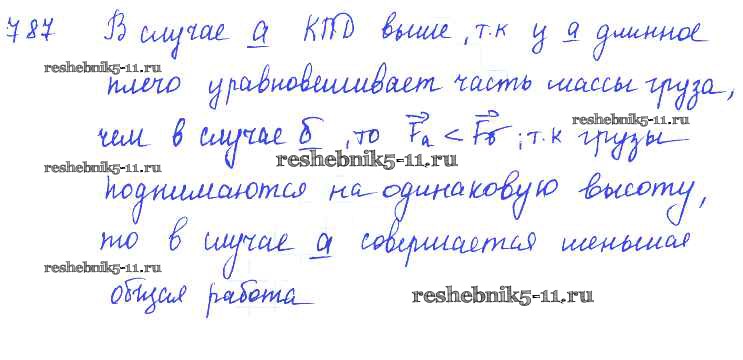 787 В случае а КПД выше, т.к у а длинное
reshebnik5-11.ru
плечо уравновешивает часть массы груза,
reshebnik5-11.ru
чем в случае б, то Fа < Fб; т.к грузы
reshebnik5-11.ru
reshebnik5-11.ru
поднимаются на одинаковую высоту,
то в случае а совершается меньшая
reshebnik5-11.ru
общая работа
reshebnik5-11.ru